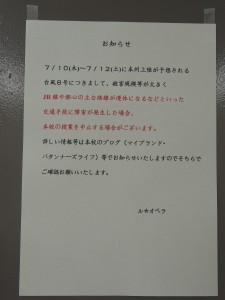 お知らせ
7/10(木)~7/12(土)に本州上陸が予想される
台風8号につきまして、被害規模等が大きく
JR線や都心の主な路線が運休になるなどといった
交通手段に障害が発生した場合、
本校の授業を中止する場合がございます。
詳しい情報等は本校のブログ(マイブランド・
パタンナーズライフ)等でお知らせいたしますのでそちらで
ご確認お願いいたします。
ル☆オペラ